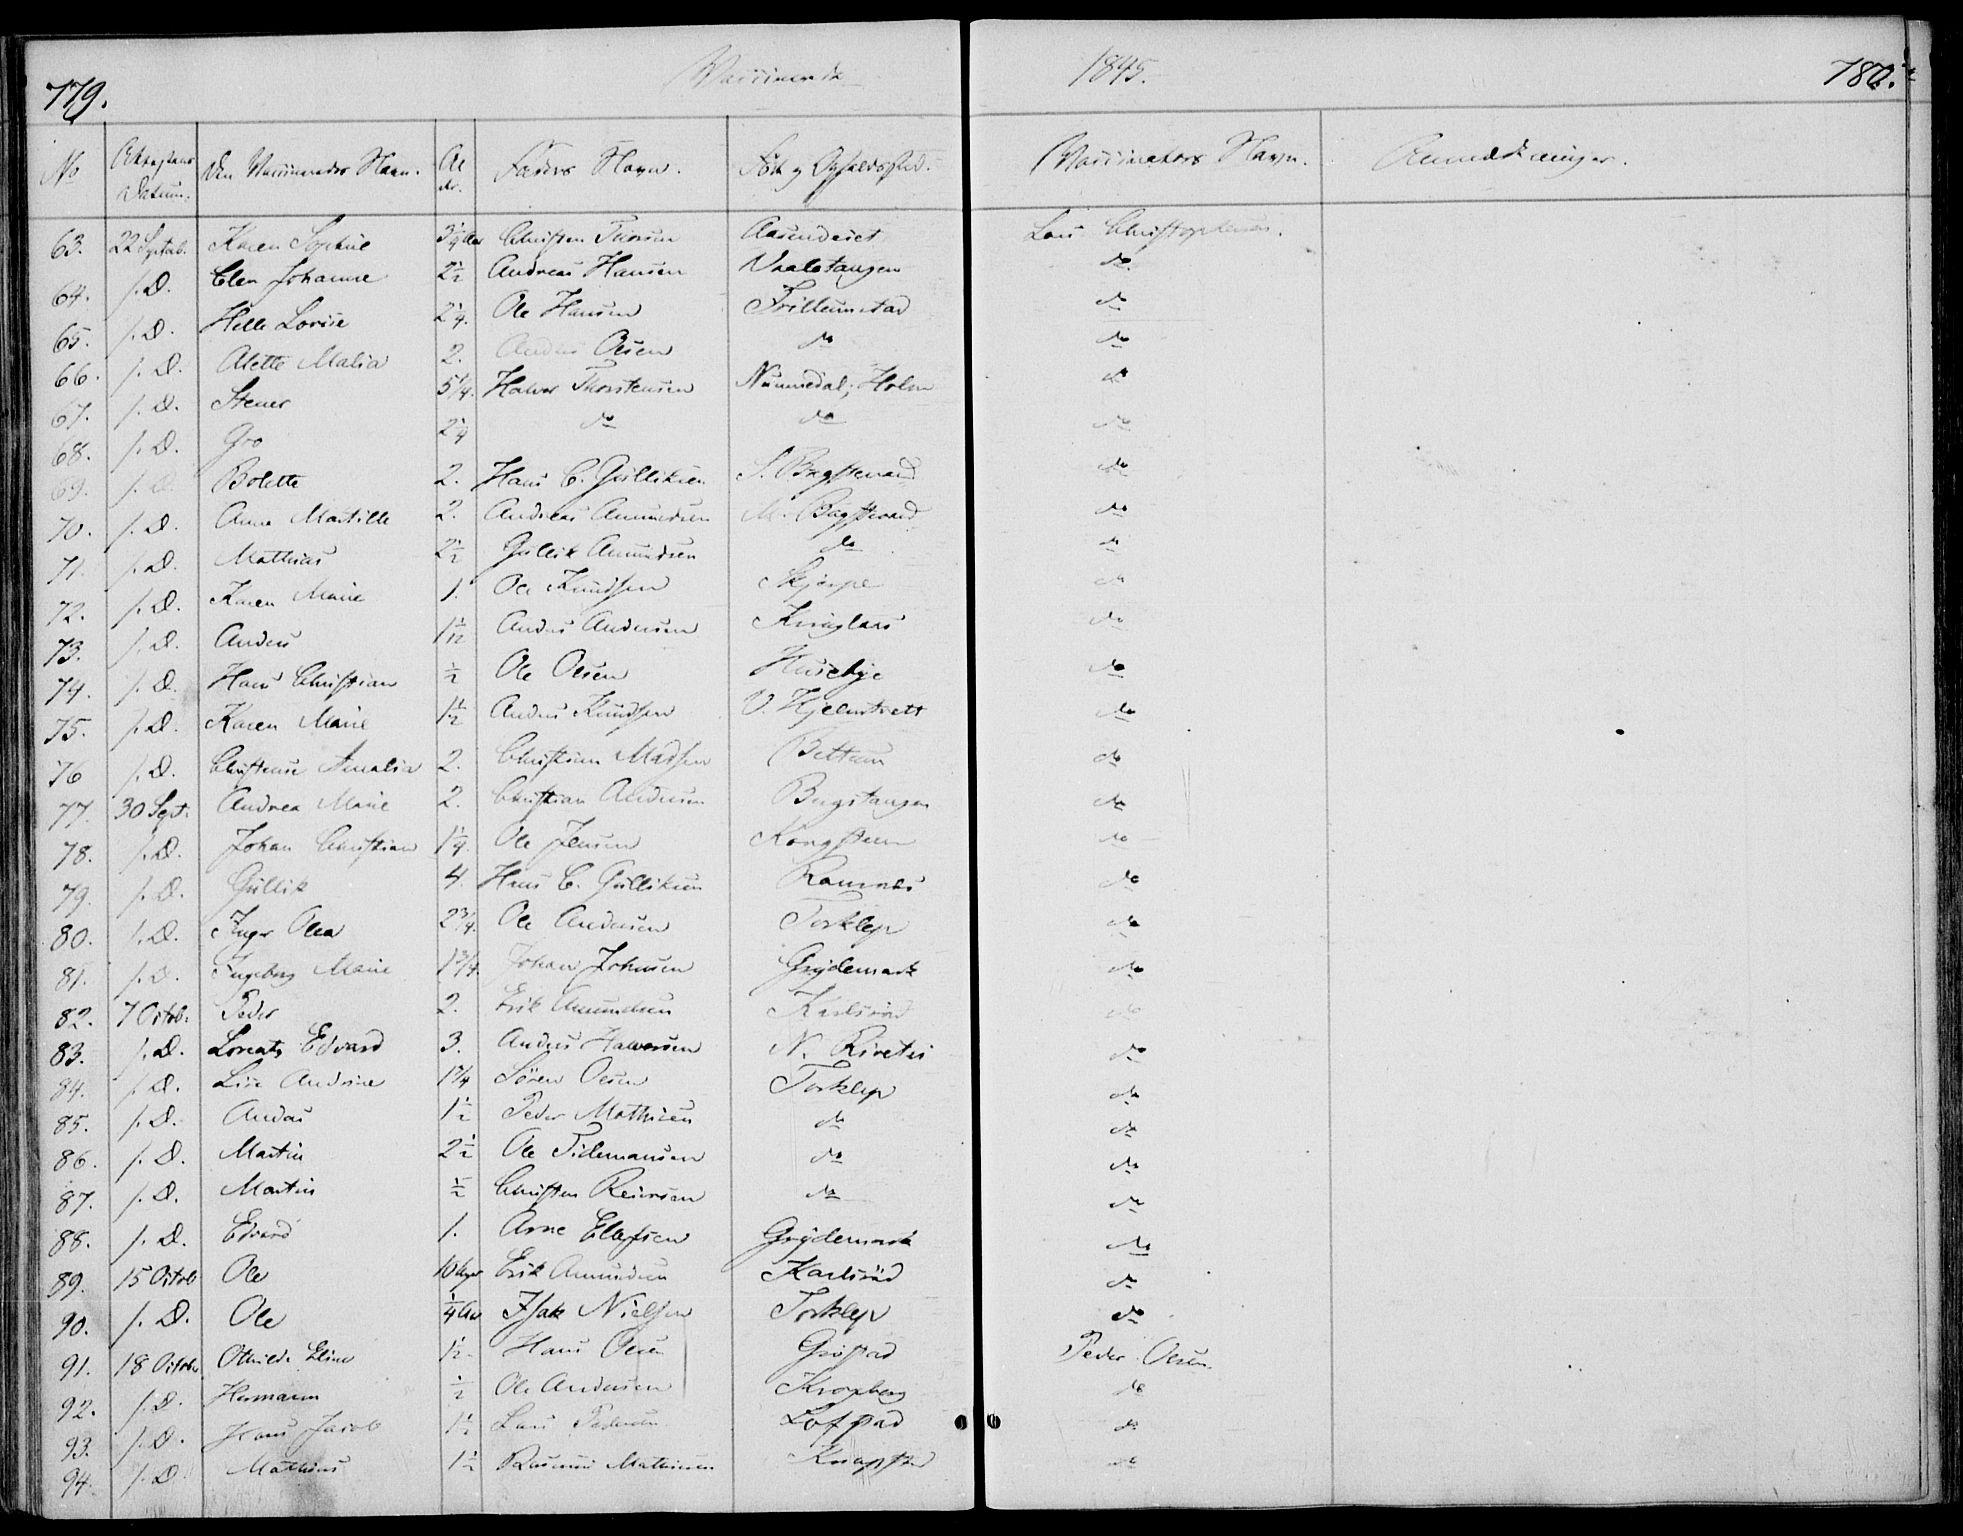 779. Vaccinerede 1845. 780.
No Attestens Datum. Den Vaccineredes Navn. Al der. Faders Navn. Føde og Opholdssted. Vaccinators Navn. Anmærkninger.
63. 22 Septbr. Karen Sophie 3 1/4 Aar Christen Iversen Aasendeiet Lars Christophersen.
64. s. D. Elen Johanne 2 1/2 Andreas Hansen Vaaletangen do
65. s. D. Helle Lovise 2 1/4. Ole Hansen Trillumstad do
66. s. D. Alette Malia 2. Anders Olsen do do
67. s. D. Stener 5 1/4. Halvor Thorstensen Nummedal; Holm do
68. s. D. Gro 2 1/4 do do do
69. s. D. Bolette 2. Hans C. Gulliksen S. Bogstrand do
70. s. D. Anne Martille 2. Andreas Amundsen M. Bogstrand do
71. s. D. Mathias 2 1/2 Gullik Amundsen do do
72. s. D. Karen Marie 1. Ole Knudsen Skjerpe do
73. s. D. Anders 1 1/12 Anders Andersen Kringlaas do
74. s. D. Hans Christian 1/2 Ole Olsen Husebye do
75. s. D. Karen Marie 1 1/2 Anders Knudsen V. Hjelmtvett do
76 s. D. Christense Amalia 2. Christian Madsen Bettum do
77. 30 Sept. Andrea Marie 2. Christian Andersen Bogstangen do
78. s. D. Johan Christian 1 1/4. Ole Jensen Kongsteen do
79. s. D. Gullik 4. Hans C. Gulliksen Ramnæs do
80. s. D. Inger Olea 2 3/4. Ole Andersen Torklep do
81. s. D. Ingeborg Marie 1 3/4. Johan Johnsen Grydemark do
82. 7 Octob. Peder 2. Erik Amundsen Karlsrød do
83. s. D. Lorents Edvard 3. Anders Halvorsen N. Rivetsi do
84. s. D. Lise Andrine 1 3/4 Søren Olsen Torklep do
85. s. D. Andas 1 1/2 Peder Mathisen do do
86. s. D. Martin 2 1/2 Ole Tidemansen do do
87. s. D. Martin 1/2 Christen Reiersen do do
88. s. D. Edvard 1. Arne Elefsen Grydemark do
89. 15 Octob Ole 10 Uger Erik Amundsen Karlsrød do
90. s. D. Ole 1/4 Aar Isak Nielsen Torklep do
91. 18 Octobr Othilde Eline 1 1/2. Hans Olsen Grøstad Peder Olsen
92. s. D. Hermann 1/2 Ole Andersen Krogsberg do
93. s. D. Hans Jacob 1 1/2 Lars Pedersen Lofstad do
94. s. D. Mathias 1 1/2 Rasmus Mathisen Knapstad do